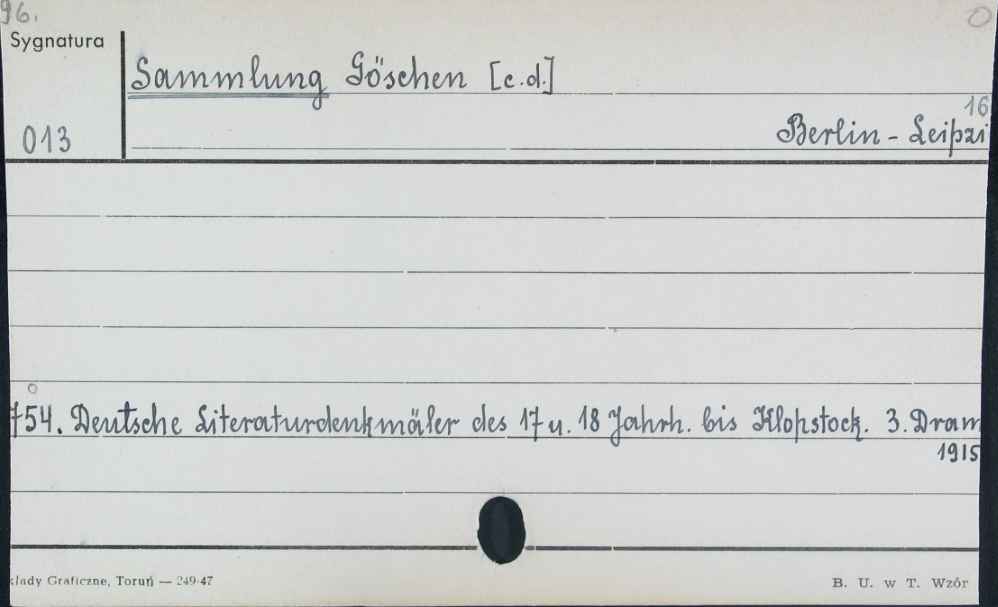 96.
Sygnatura
Sammlung Göschen [c.d.]
16
013
Berlin - Leipzi
754. Deutsche Literaturdenkmäler des 17 u. 18 Jahrh. bis Klopstock. 3. Dram
1915
kłady Graficzne, Toruń — 249-47
B. U. w T. Wzór